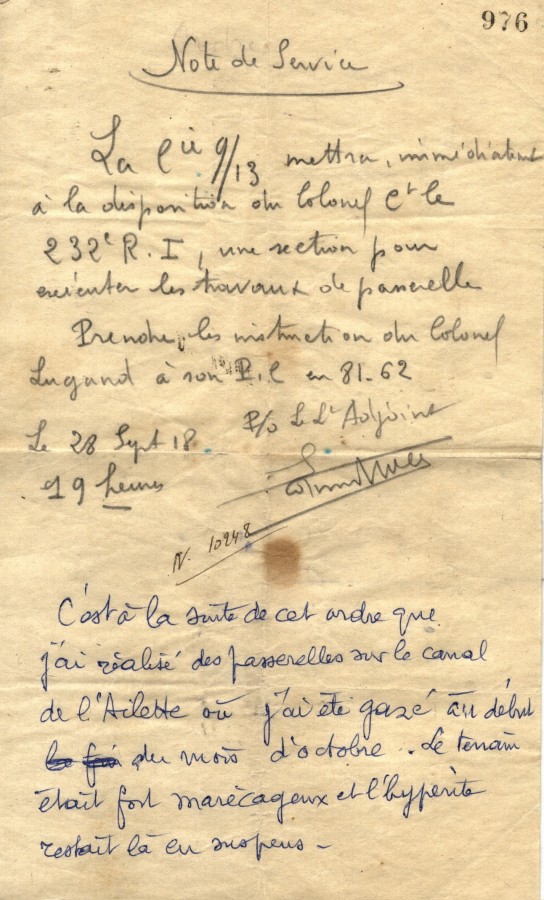 976
Note de Service
La Cie 9/13 mettra, immédiatement
à la disposition du Colonel Ct le
232e R.I, une section pour
exécuter les travaux de passerelle
Prendre les instruction du Colonel
Lugand à son P.C en 81-62
P/o Le Lt Adjoint
Le 28 Sept 18
19 heures
N. 10248
C'est à la suite de cet ordre que
j'ai réalisé des passerelles sur le canal
de l'Ailette où j'ai été gazé au début
du mois d'octobre. Le terrain
était fort marécageux et l'hypérite
restait là en suspens -